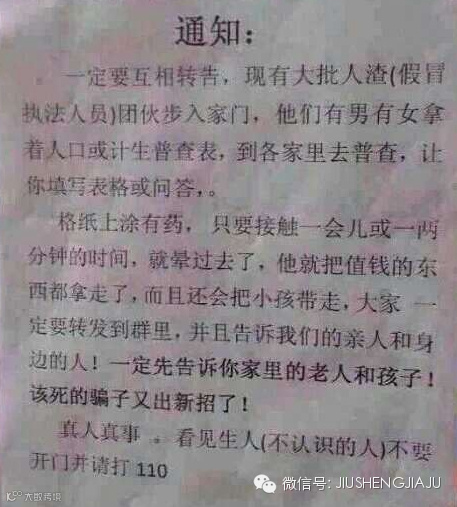 通知：
。一定要互相转告，现有大批人渣(假冒
执法人员)团伙步入家门，他们有男有女拿
着人口或计生普查表，到各家里去普查，让
你填写表格或问答，。
格纸上涂有药，只要接触一会儿或一两
分钟的时间，就晕过去了，他就把值钱的东
西都拿走了，而且还会把小孩带走，大家 一
定要转发到群里，并且告诉我们的亲人和身
边的人！一定先告诉你家里的老人和孩子！
该死的骗子又出新招了！
真人真事 。看见生人(不认识的人)不要
开门并请打 110
微信号: JIUSHENGJIAJU
大数跨境